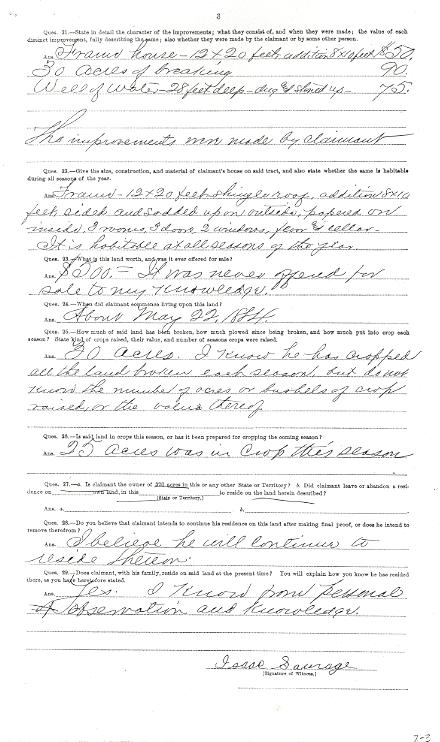 3
Ques. 21.—State in detail the character of the improvements; what they consist of, and when they were made; the value of each
distinct improvement, fully describing the same; also whether they were made by the claimant or by some other person.
Ans. Frame house - 12 x 20 feet, addition 8x10 feet $50.
30 Acres of breaking 90.
Well of water - 28 feet deep - dug & stoned up - 75.
The improvements were made by claimant
Ques. 22.—Give the size, construction, and material of claimant's house on said tract, and also state whether the same is habitable
during all seasons of the year.
Ans. Frame - 12 x 20 feet - shingle roof, addition 8x10
feet, sided and sodded upon outside, papered on
inside, 3 rooms, 3 doors, 2 windows, floor & cellar -
It is habitable at all seasons of the year.
Ques. 23.—What is this land worth, and was it ever offered for sale?
Ans. $ 200. = It was never offered for
sale to my knowledge.
Ques. 24.—When did claimant commence living upon this land?
Ans. About May 22, 1884
Ques. 25.—How much of said land has been broken, how much plowed since being broken, and how much put into crop each
season? State kind of crops raised, their value, and number of seasons crops were raised.
Ans. 30 acres. I know he has cropped
all the land broken each season, but do not
know the number of acres or bushels of crop
raised, or the value thereof
Ques. 26.—Is said land in crops this season, or has it been prepared for cropping the coming season?
Ans. 25 Acres was in Crop this season
Ques. 27.—a. Is claimant the owner of 320 acres in this or any other State or Territory? b. Did claimant leave or abandon a resi-
dence on own land, in this to reside on the land herein described?
(State or Territory.)
Ans. a. b.
Ques. 28.—Do you believe that claimant intends to continue his residence on this land after making final proof, or does he intend to
remove therefrom?
Ans. I believe he will continue to
reside thereon.
Ques. 29.—Does claimant, with his family, reside on said land at the present time? You will explain how you know he has resided
there, as you have heretofore stated.
Ans. Yes. I know from personal
observation and knowledge.
Isaac Saurage
(Signature of Witness.)
7-3